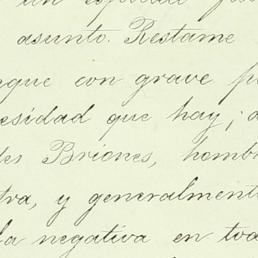 un especial
asunto. Restame
que con grave
esidad que hay; a
des Briones, homb
tra, y generalment
la negativa en tod